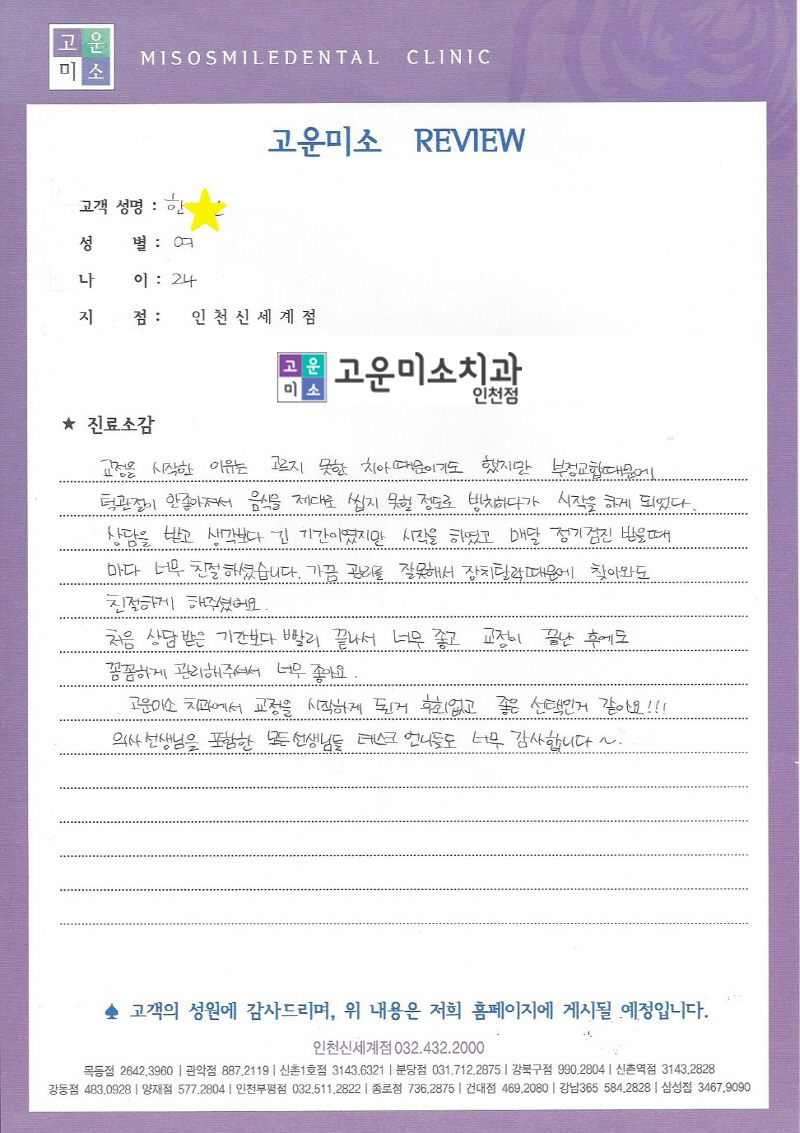 고운
미소
MISOSMILEDENTAL CLINIC
고운미소 REVIEW
고객 성명 : 한
성 별 : 여
나 이 : 24
지 점 : 인천신세계점
고운
미소
고운미소치과
인천점
★ 진료소감
교정을 시작한 이유는 고르지 못한 치아때문이기도 했지만 부정교합때문에
턱관절이 안좋아져서 음식을 제대로 씹지 못할 정도로 방치하다가 시작을 하게 되었다.
상담을 받고 생각보다 긴 기간이였지만 시작을 하였고 매달 정기검진 받을때
마다 너무 친절하셨습니다. 가끔 관리를 잘못해서 장치탈락때문에 찾아와도
친절하게 해주셨어요.
처음 상담받은 기간보다 빨리 끝나서 너무 좋고 교정이 끝난 후에도
꼼꼼하게 관리해주셔서 너무 좋아요.
고운미소 치과에서 교정을 시작하게 된거 후회없고 좋은 선택인거 같아요!!!
의사선생님을 포함한 모든선생님들 데스크 언니들도 너무 감사합니다 ~.
♠ 고객의 성원에 감사드리며, 위 내용은 저희 홈페이지에 게시될 예정입니다.
인천신세계점 032.432.2000
목동점 2642.3960 | 관악점 887.2119 | 신촌1호점 3143.6321 | 분당점 031.712.2875 | 강북구점 990.2804 | 신촌역점 3143.2828
강동점 483.0928 | 양재점 577.2804 | 인천부평점 032.511.2822 | 종로점 736.2875 | 건대점 469.2080 | 강남365 584.2828 | 삼성점 3467.9090